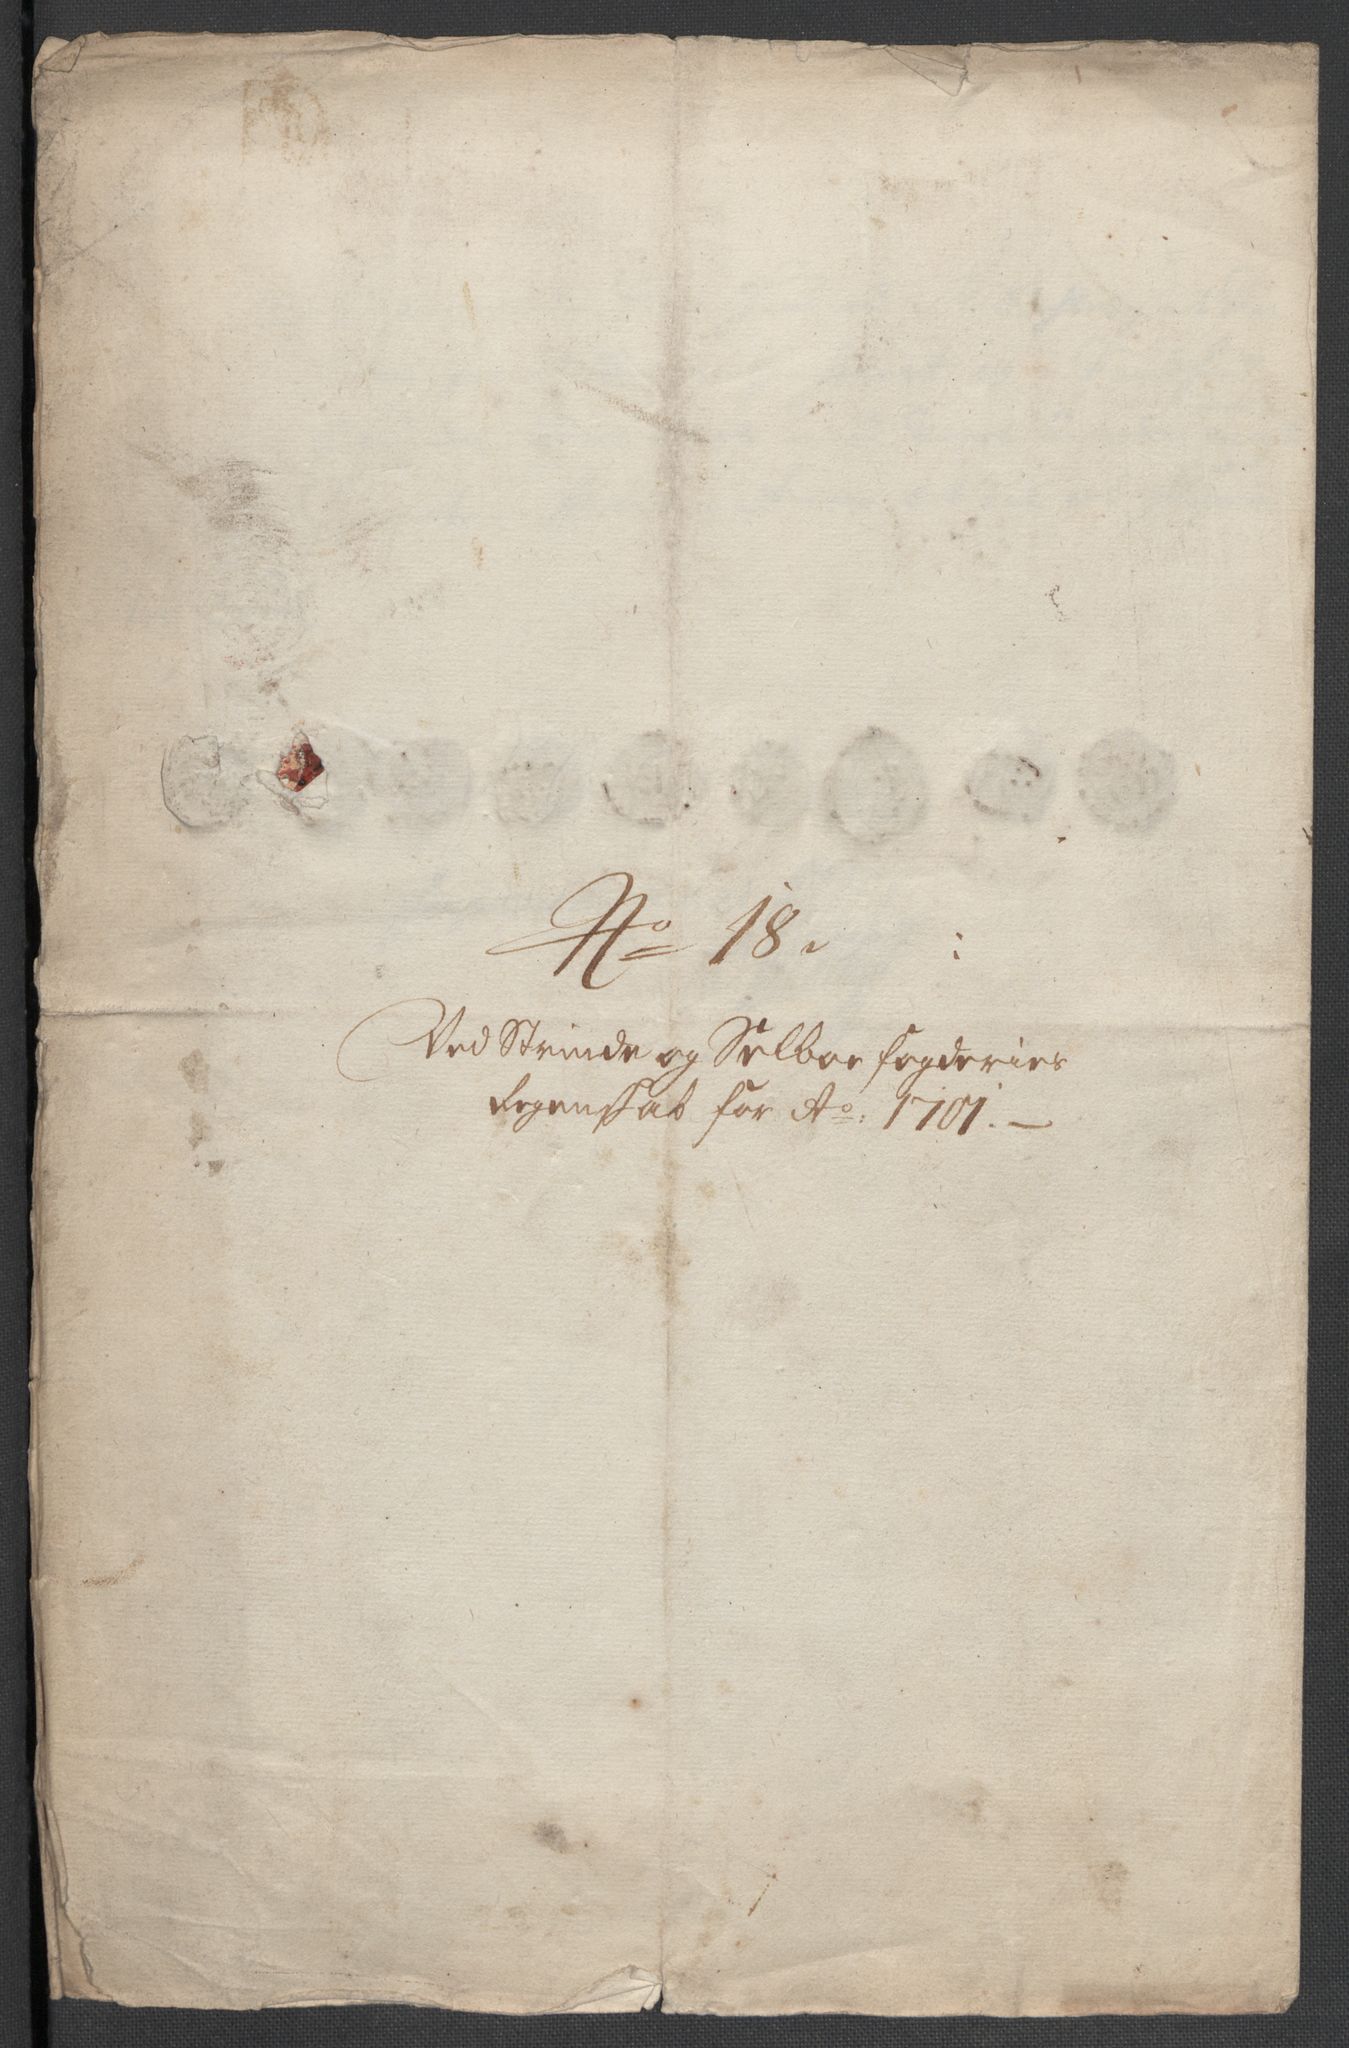 No 18.
Ved Strinde og Selboe fogderies
Regenskab for Ao: 1701.